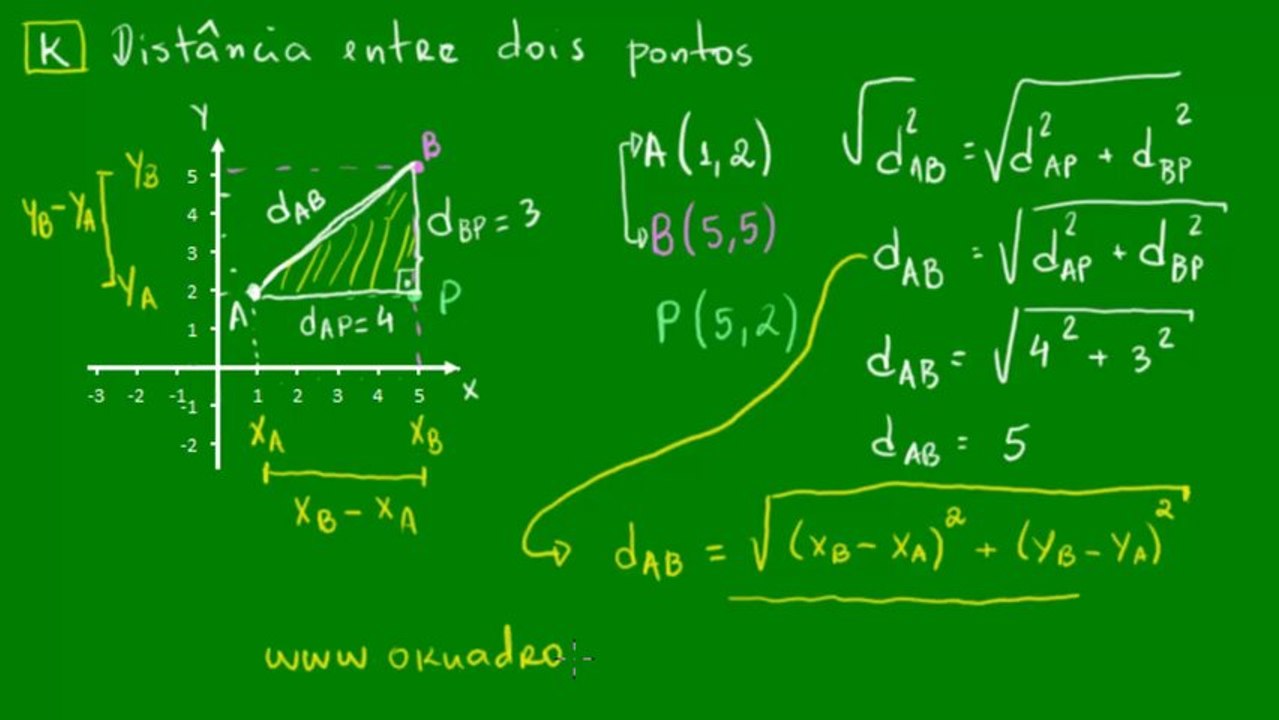 K Distância entre dois pontos
Y
B
5
4
3
2
1
-1
-2
-3 -2 -1 1 2 3 4 5 X
YB
YB-YA
YA
dAB
dBP = 3
A
P
dAP=4
XA XB
XB - XA
A(1,2)
B(5,5)
P(5,2)
√d²AB = √d²AP + dBP²
dAB = √d²AP + dBP²
dAB = √4² + 3²
dAB = 5
dAB = √(XB - XA)² + (YB - YA)²
www okuadro